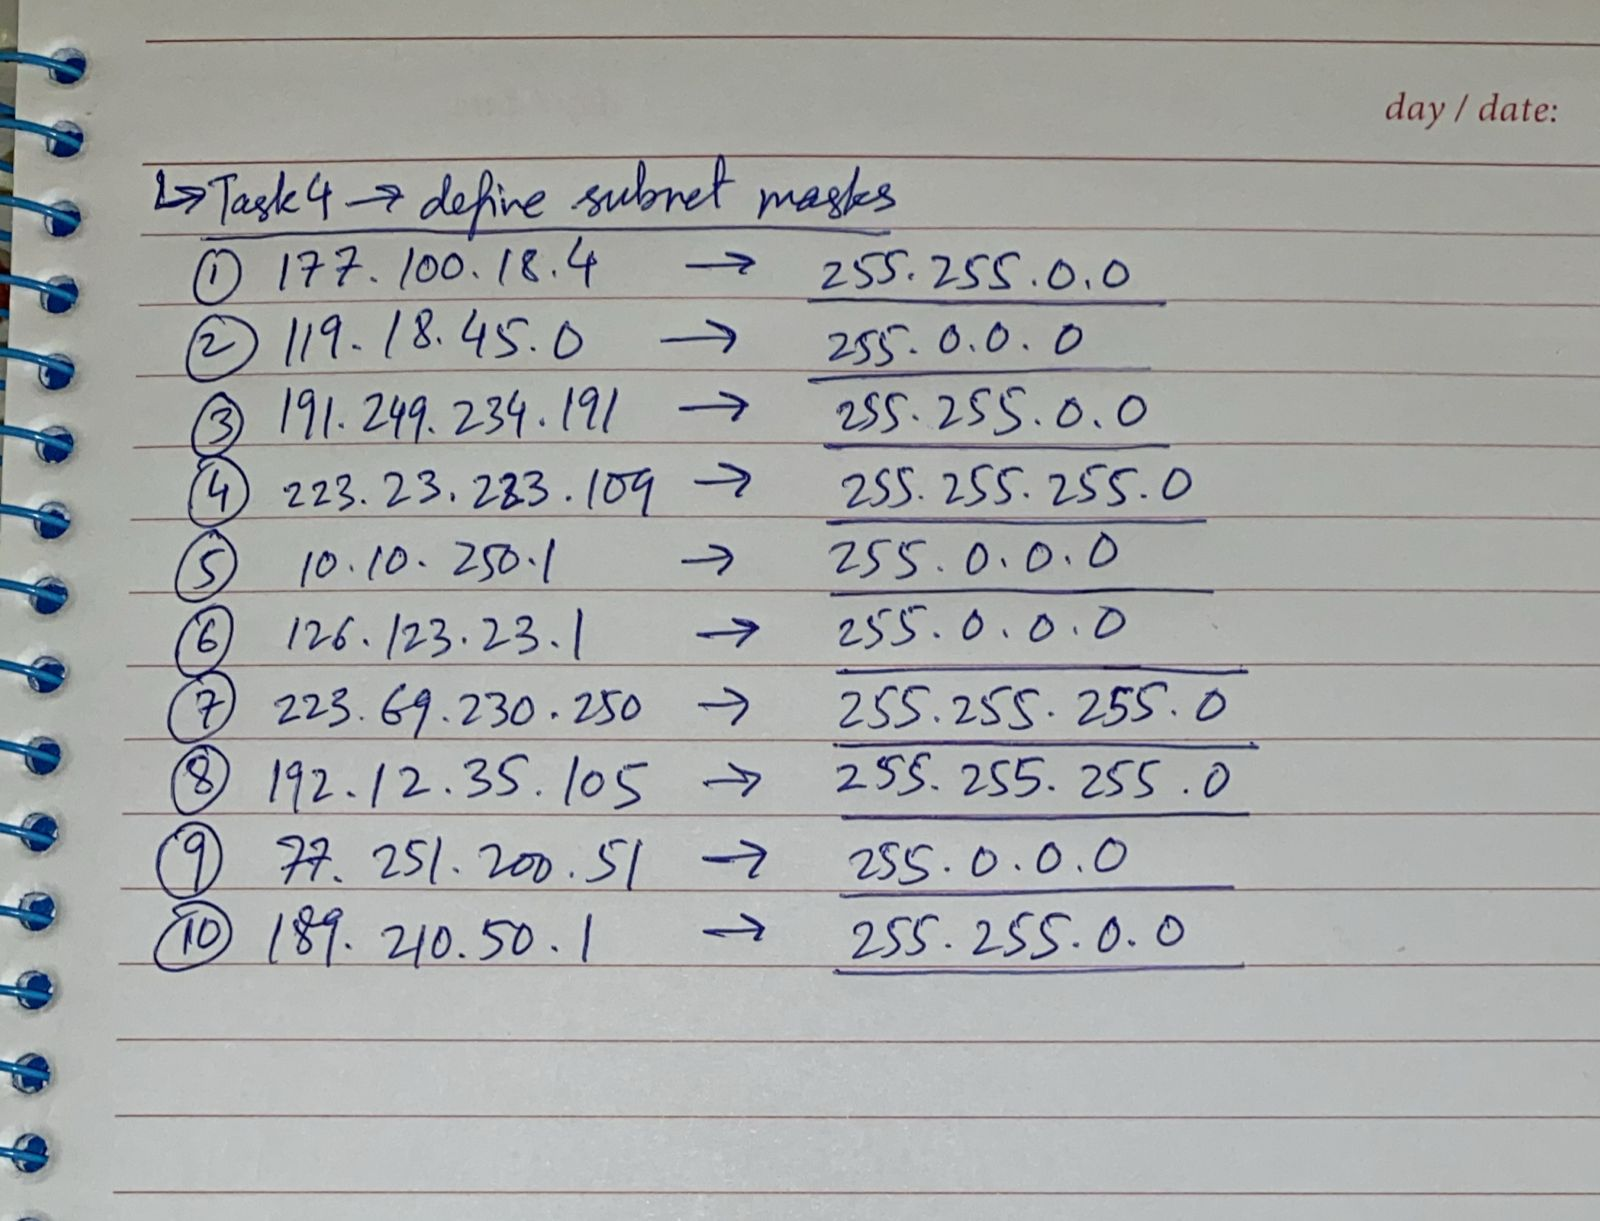 day / date:
↳ Task 4 → define subnet masks
① 177.100.18.4 → 255.255.0.0
② 119.18.45.0 → 255.0.0.0
③ 191.249.234.191 → 255.255.0.0
④ 223.23.223.109 → 255.255.255.0
⑤ 10.10.250.1 → 255.0.0.0
⑥ 126.123.23.1 → 255.0.0.0
⑦ 223.69.230.250 → 255.255.255.0
⑧ 192.12.35.105 → 255.255.255.0
⑨ 77.251.200.51 → 255.0.0.0
⑩ 189.210.50.1 → 255.255.0.0